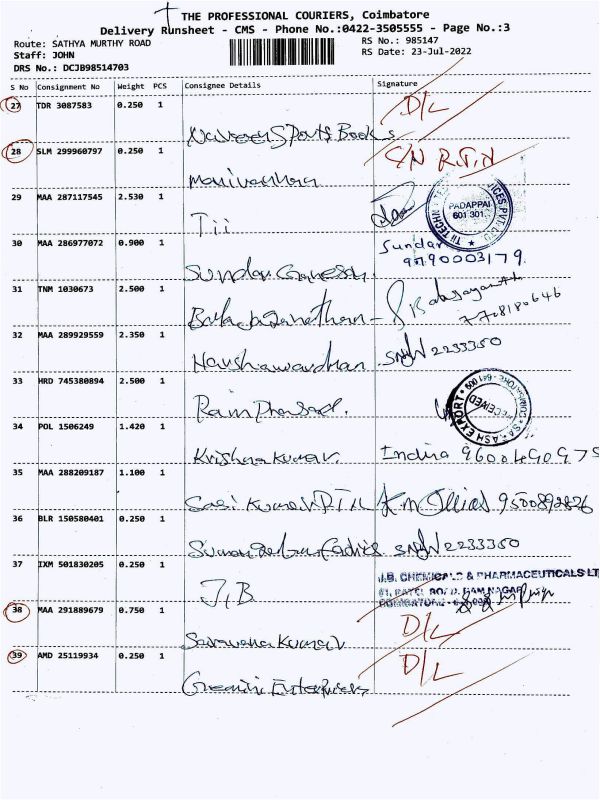 THE PROFESSIONAL COURIERS, Coimbatore
Delivery Runsheet - CMS - Phone No.:0422-3505555 - Page No.:3
Route: SATHYA MURTHY ROAD
RS No.: 985147
Staff: JOHN
RS Date: 23-Jul-2022
DRS No.: DCJB98514703
S No Consignment No Weight PCS Consignee Details Signature
27 TDR 3087583 0.250 1 D/L
Naveen Sports Books
28 SLM 299960797 0.250 1 S/N R.T.N
Manivannan
29 MAA 287117545 2.530 1
Tii
PADAPPAI
601 301
30 MAA 286977072 0.900 1 Sundar
9790003179.
Sundar Ganesan.
31 TNM 1030673 2.500 1 Balajaganath
Bala Jaganathan 7708180646
32 MAA 289929559 2.350 1 2233350
Harshawardhan
33 HRD 745380894 2.500 1
Ram Prasad.
RECEIVED
34 POL 1506249 1.420 1
Krishna Kumar. Indira 9600490975
35 MAA 288209187 1.100 1
Sasi Kumar 9500892826
36 BLR 150580401 0.250 1
2233350
37 IXM 501830205 0.250 1
J.B. J.B. CHEMICALS & PHARMACEUTICALS LT
#1, PATEL ROAD, RAM NAGAR
COIMBATORE
38 MAA 291889679 0.750 1 D/L
Saravana Kumar
39 AMD 25119934 0.250 1 D/L
Gremini Enterprises